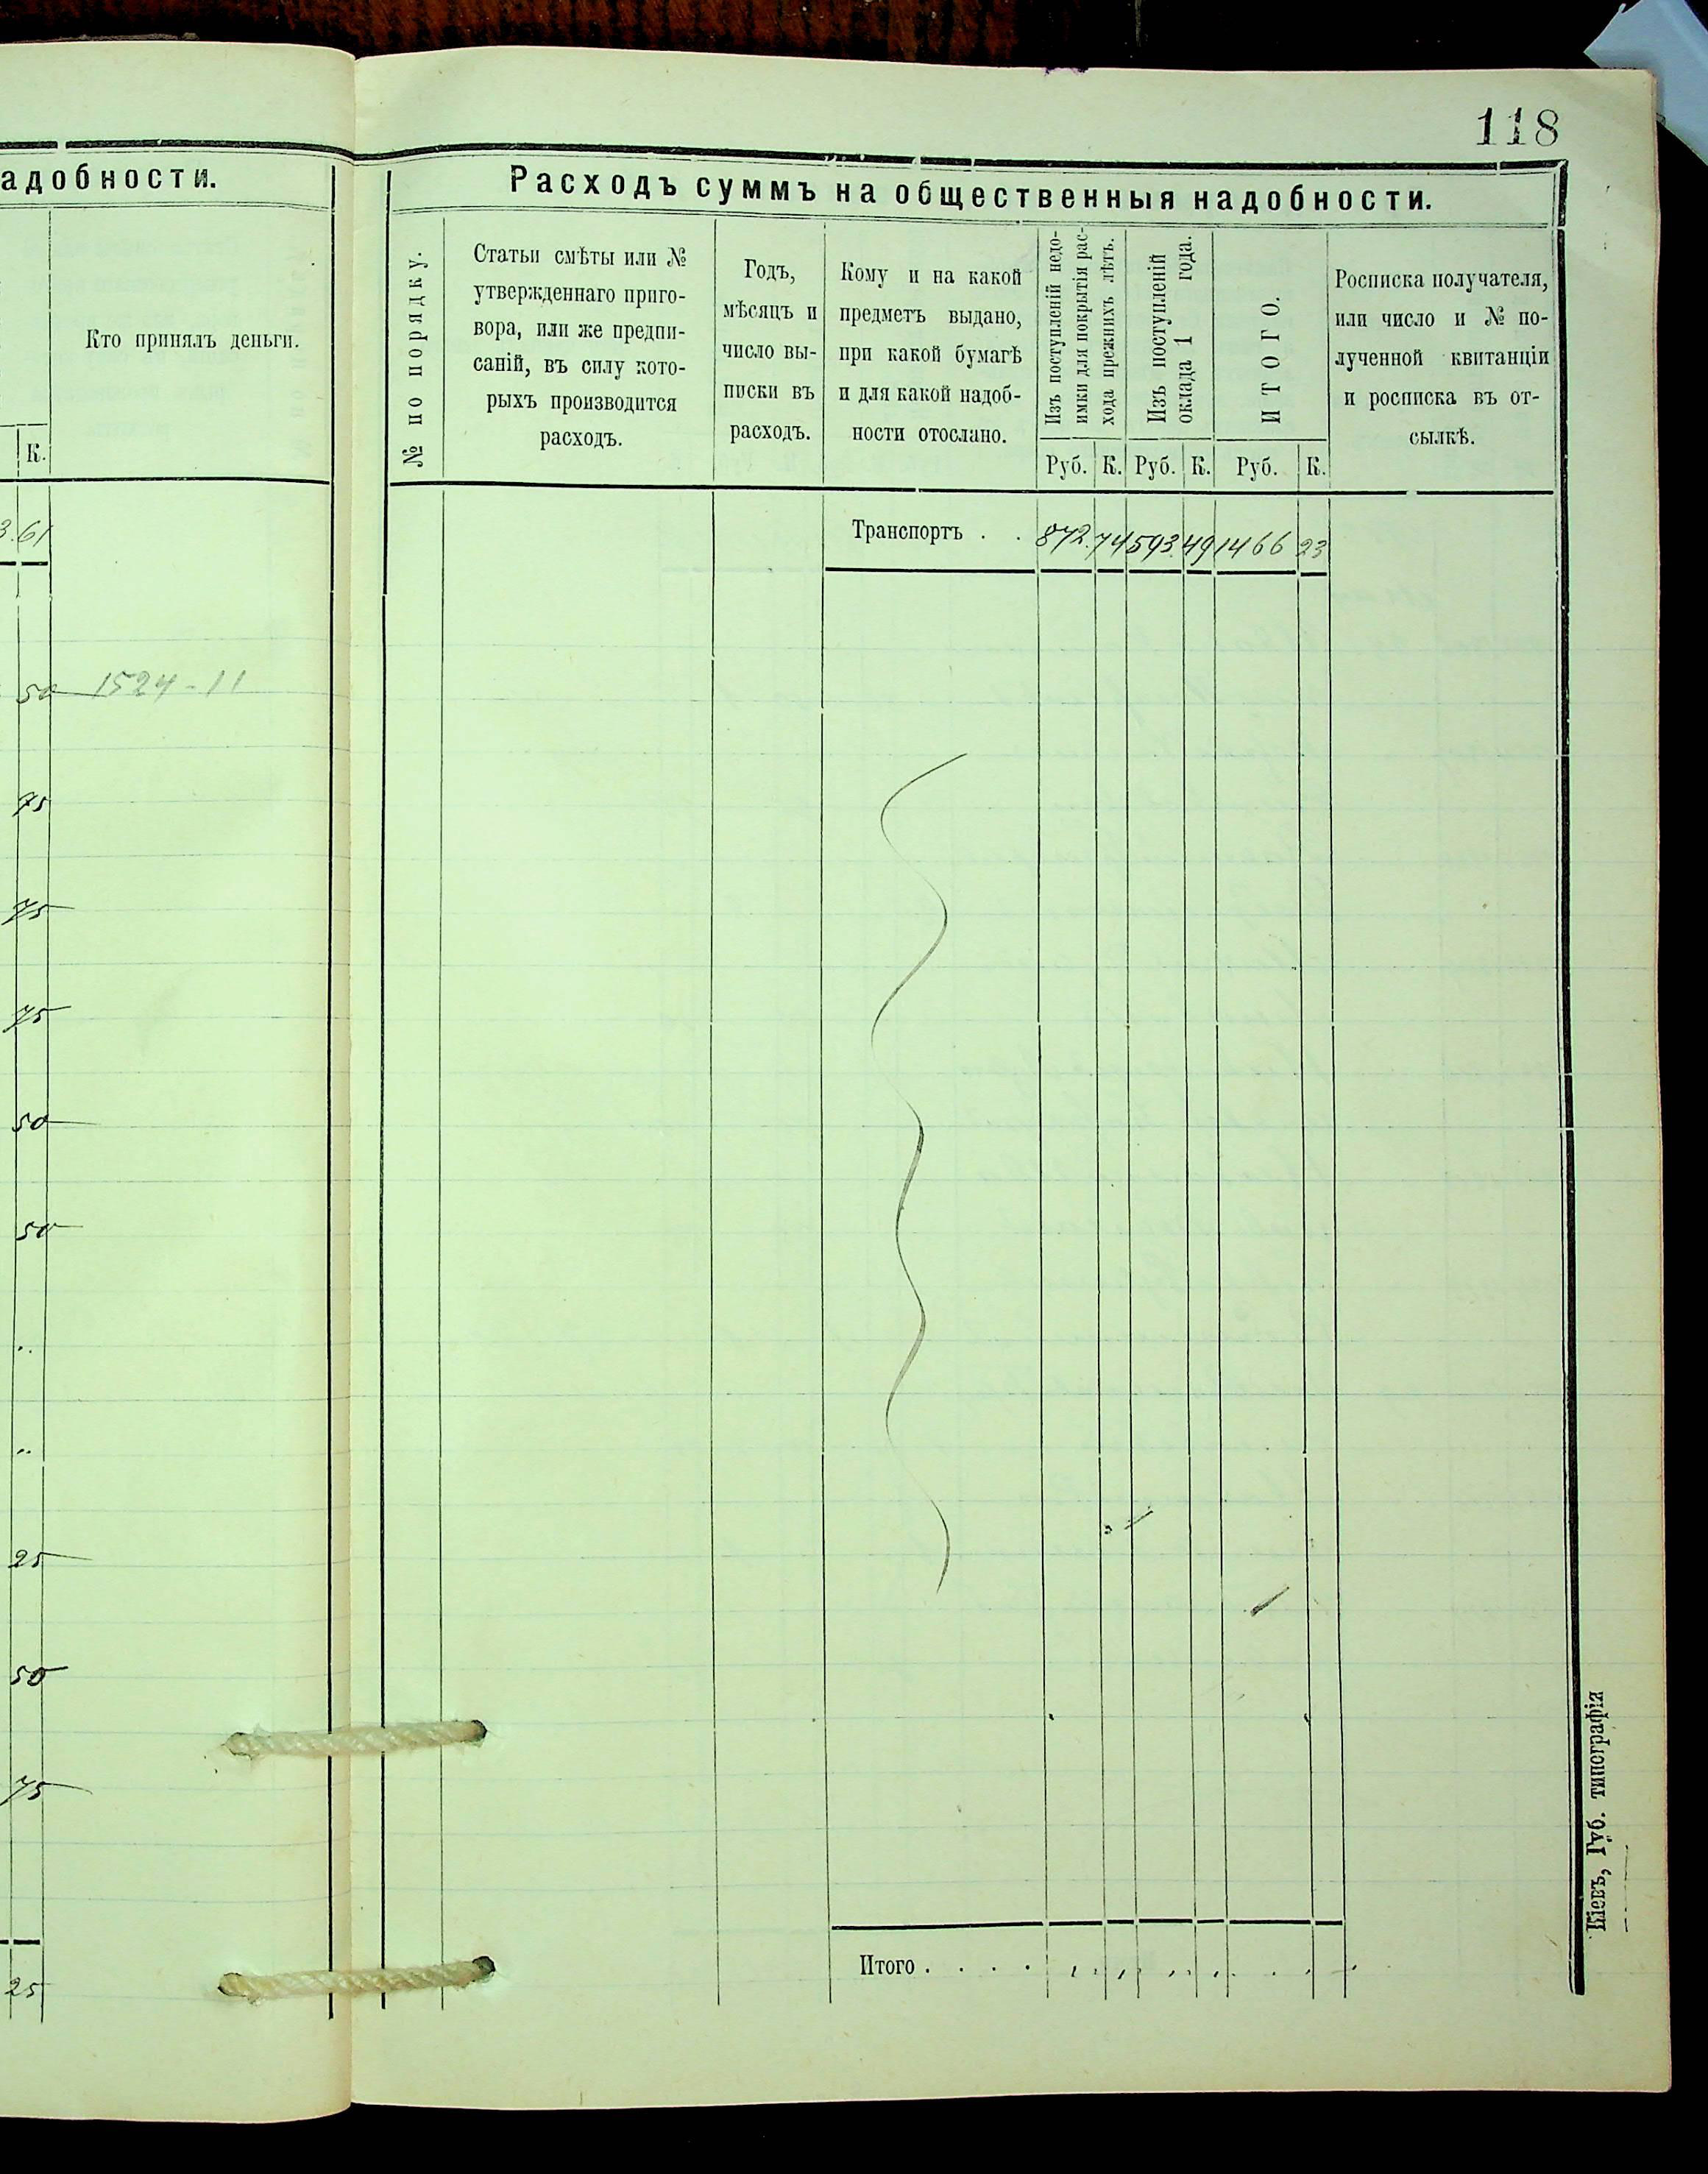 118
адобности.
К.
Кто принялъ деньги.
61
50 1524-11
75
75
75
50
50
25
50
75
25
Расходъ суммъ на общественныя надобности.
№ по порядку.
Статьи смѣты или №
утвержденнаго приго-
вора, или же предпи-
саній, въ силу кото-
рыхъ производится
расходъ.
Годъ,
мѣсяцъ и
число вы-
писки въ
расходъ.
Кому и на какой
предметъ выдано,
при какой бумагѣ
и для какой надоб-
ности отослано.
Изъ поступленій недо-
имки для покрытія рас-
хода прежнихъ лѣтъ.
Изъ поступленій
оклада 1 года.
ИТОГО.
Руб. К. Руб. К. Руб. К.
Росписка получателя,
или число и № по-
лученной квитанціи
и росписка въ от-
сылкѣ.
Транспортъ . . 872. 74 593. 49 1466 23
Итого . . . .
Кіевъ, Губ. типографія